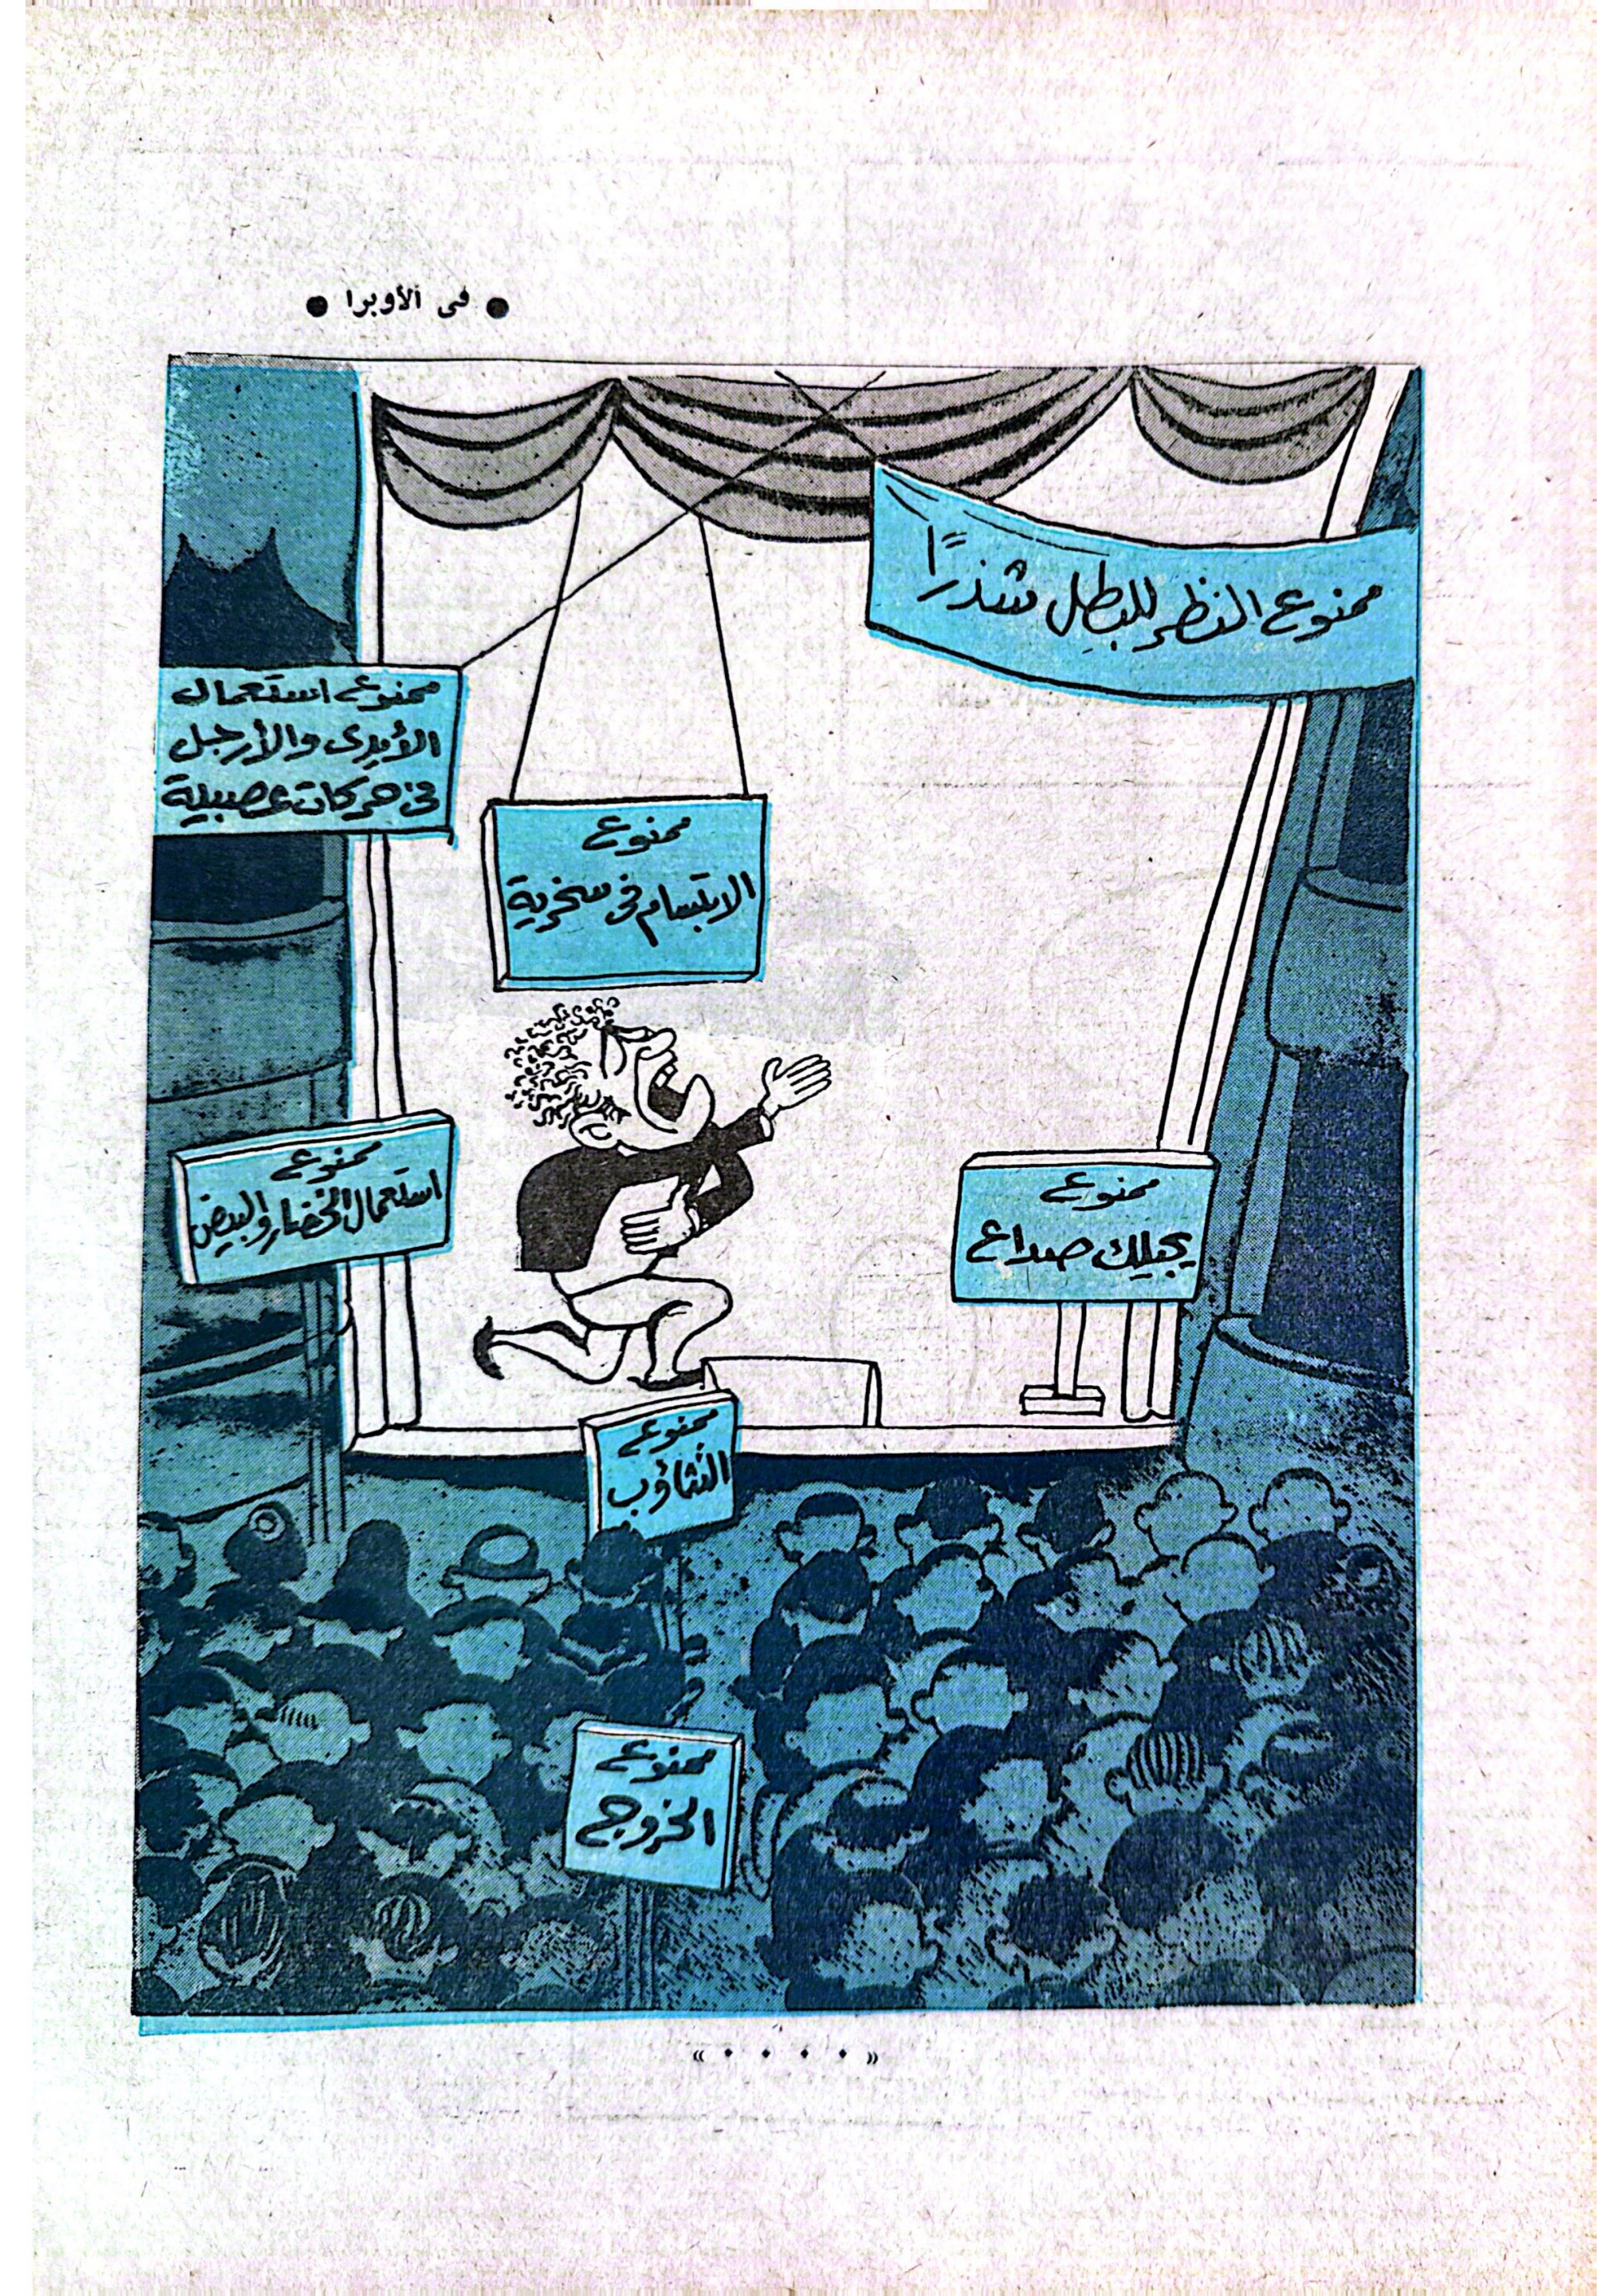 ● في الأوبرا ●
ممنوع النظر للبطل شذرًا
ممنوع استعمال
الأيدى والأرجل
فى حركات عصبية
ممنوع
الابتسام فى سخرية
ممنوع
استعمال الخضار والبيض
ممنوع
يجيلك صداع
ممنوع
التثاؤب
ممنوع
الخروج
« • • • • »